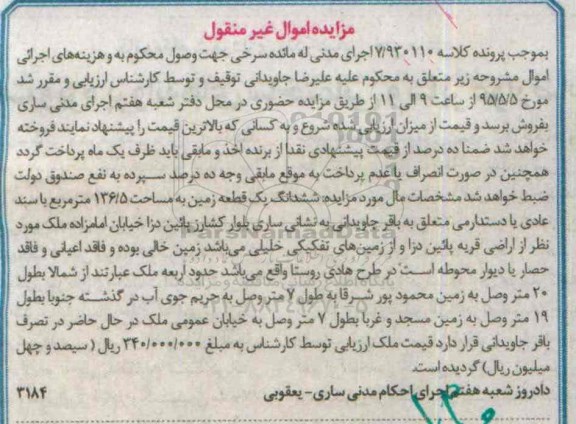 مزایده اموال غیر منقول
بموجب پرونده کلاسه ۷/۹۳۰۱۱۰ اجرای مدنی له مائده سرخی جهت وصول محکوم به و هزینه‌های اجرائی
اموال مشروحه زیر متعلق به محکوم علیه علیرضا جاویدانی توقیف و توسط کارشناس ارزیابی و مقرر شد
مورخ ۹۵/۵/۵ از ساعت ۹ الی ۱۱ از طریق مزایده حضوری در محل دفتر شعبه هفتم اجرای مدنی ساری
بفروش برسد و قیمت از میزان ارزیابی شده شروع و به کسانی که بالاترین قیمت را پیشنهاد نمایند فروخته
خواهد شد ضمنا ده درصد از قیمت پیشنهادی نقدا از برنده اخذ و مابقی باید ظرف یک ماه پرداخت گردد
همچنین در صورت انصراف یا عدم پرداخت به موقع مابقی وجه ده درصد سپرده به نفع صندوق دولت
ضبط خواهد شد مشخصات مال مورد مزایده: ششدانگ یک قطعه زمین به مساحت ۱۳۶/۵ مترمربع با سند
عادی یا دستدارمی متعلق به باقر جاویدانی به نشانی ساری بلوار کشاورز پائین دزا خیابان امامزاده ملک مورد
نظر از اراضی قریه پائین دزا و از زمین‌های تفکیکی خلیلی می‌باشد زمین خالی بوده و فاقد اعیانی و فاقد
حصار یا دیوار محوطه است در طرح هادی روستا واقع می‌باشد حدود اربعه ملک عبارتند از شمالا بطول
۲۰ متر وصل به زمین محمود پور شرقا به طول ۷ متر وصل به حریم جوی آب در گذشته جنوبا بطول
۱۹ متر وصل به زمین مسجد و غربا بطول ۷ متر وصل به خیابان عمومی ملک در حال حاضر در تصرف
باقر جاویدانی قرار دارد قیمت ملک ارزیابی توسط کارشناس به مبلغ ۳۴۰/۰۰۰/۰۰۰ ریال ( سیصد و چهل
میلیون ریال) گردیده است.
دادروز شعبه هفتم اجرای احکام مدنی ساری- یعقوبی ۳۱۸۴